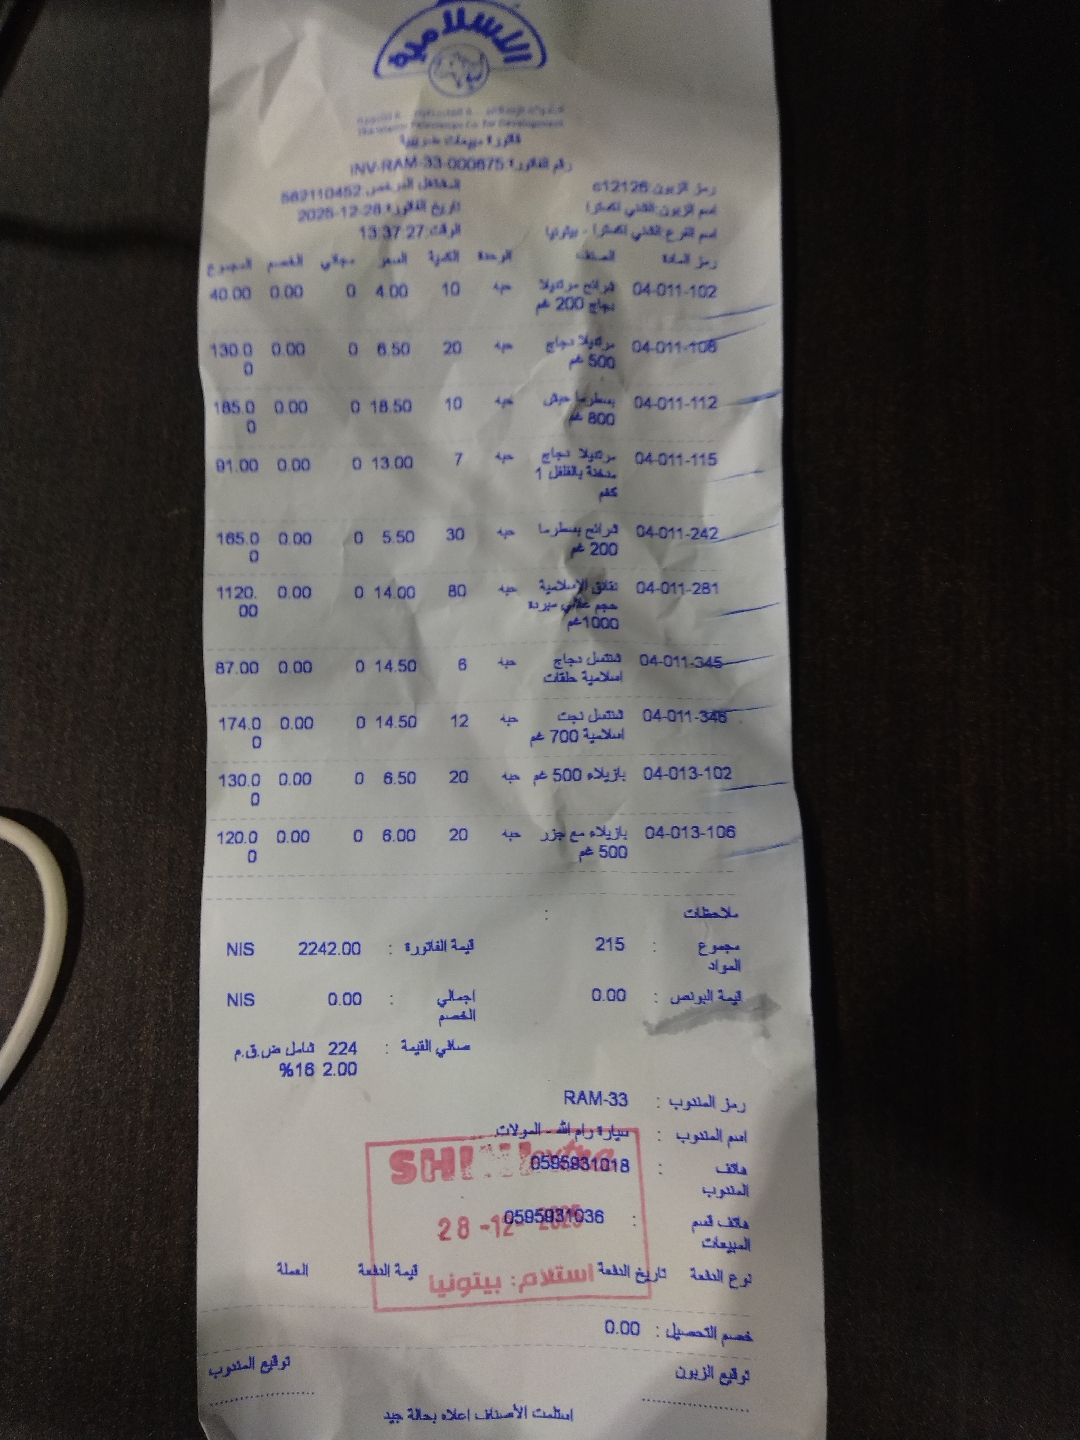 الاسلامية
The Islamic Palestinian Co. for Development
فاتورة مبيعات ضريبية
رقم الفاتورة: INV-RAM-33-000675
رمز الزبون: c12126 المشتغل المرخص 562110452
اسم الزبون: الشني اكسترا تاريخ الفاتورة: 2025-12-28
اسم الفرع الشني اكسترا - بيتونيا الوقت: 13:37:27
رمز المادة الصنف الوحدة الكمية السعر مجاني الخصم المجموع
04-011-102 شرائح مرتديلا حبه 10 4.00 0 0.00 40.00
دجاج 200 غم
04-011-106 مرتديلا دجاج حبه 20 6.50 0 0.00 130.0
500 غم 0
04-011-112 بسطرما حبش حبه 10 18.50 0 0.00 185.0
800 غم 0
04-011-115 مرتديلا دجاج حبه 7 13.00 0 0.00 91.00
مدخنة بالفلفل 1
كغم
04-011-242 شرائح بسطرما حبه 30 5.50 0 0.00 165.0
200 غم 0
04-011-281 نقانق الاسلامية حبه 80 14.00 0 0.00 1120.
حجم عائلي مبردة 00
1000غم
04-011-345 شنتسل دجاج حبه 6 14.50 0 0.00 87.00
اسلامية حلقات
04-011-346 شنتسل نجت حبه 12 14.50 0 0.00 174.0
اسلامية 700 غم 0
04-013-102 بازيلاء 500 غم حبه 20 6.50 0 0.00 130.0
0
04-013-106 بازيلاء مع جزر حبه 20 6.00 0 0.00 120.0
500 غم 0
ملاحظات :
مجموع : 215 قيمة الفاتورة : 2242.00 NIS
المواد
قيمة البونص : 0.00 اجمالي : 0.00 NIS
الخصم
صافي القيمة : 224 شامل ض.ق.م
2.00 16%
رمز المندوب : RAM-33
اسم المندوب : سيارة رام الله - المولات
هاتف : 0595931018
المندوب
هاتف قسم : 0595931036
المبيعات
extra
28 -12- 2025
استلام: بيتونيا
نوع الدفعة تاريخ الدفعة قيمة الدفعة العملة
خصم التحصيل : 0.00
توقيع الزبون توقيع المندوب
استلمت الأصناف اعلاه بحالة جيد